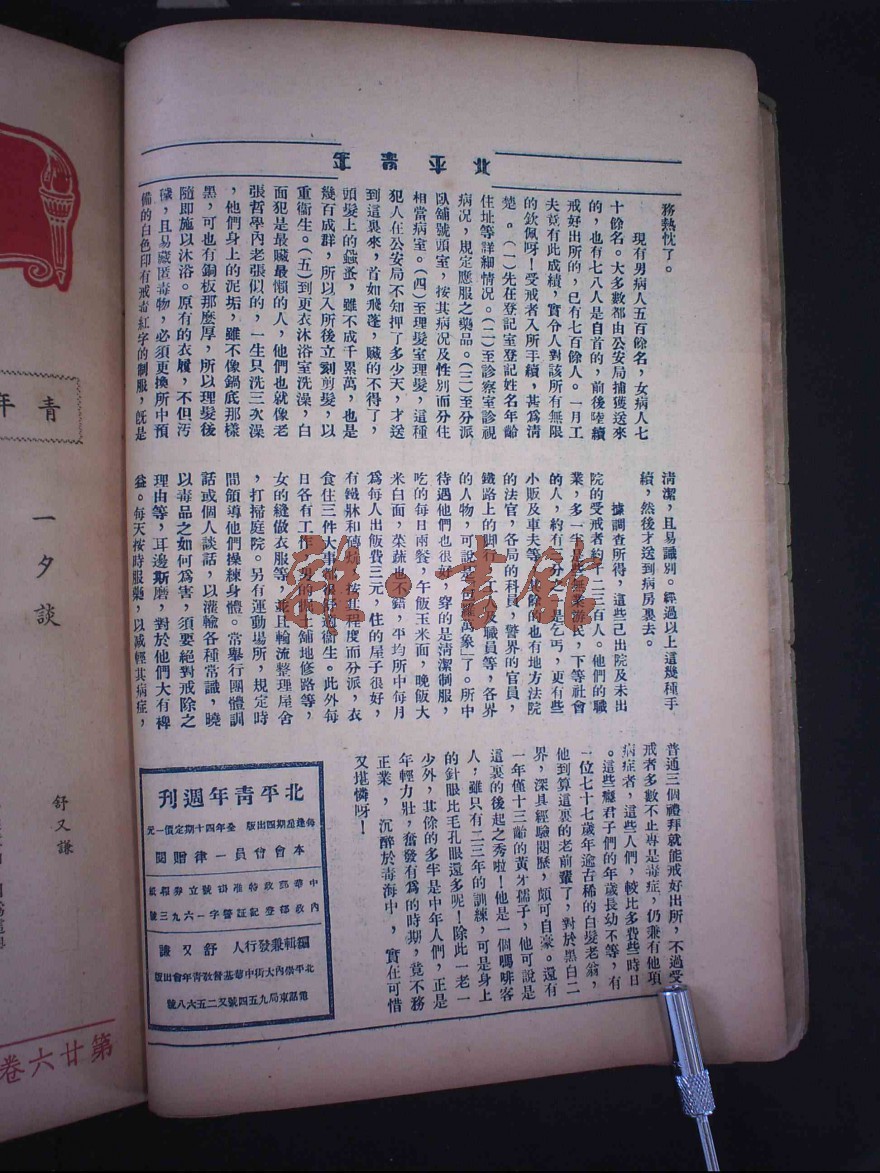 北平青年
務熱忱了。
現有男病人五百餘名，女病人七
十餘名。大多數都由公安局捕獲送來
的，也有七八人是自首的，前後陸續
戒好出所的，已有七百餘人。一月工
夫竟有此成績，實令人對該所有無限
的欽佩呀！受戒者入所手續，甚爲清
楚。（一）先在登記室登記姓名年齡
住址等詳細情况。（二）至診察室診視
病况，規定應服之藥品。（三）至分派
臥舖號頭室，按其病况及性別而分住
相當病室。（四）至理髮室理髮，這種
犯人在公安局不知押了多少天，才送
到這裏來，首如飛蓬，贓的不得了，
頭髮上的蟲蚤，雖不成千累萬，也是
幾百成群，所以入所後立刻剪髮，以
重衞生。（五）到更衣沐浴室洗澡，白
面犯是最贓最懶的人，他們也就像老
張哲學內老張似的，一生只洗三次澡
，他們身上的泥垢，雖不像鍋底那樣
黑，可也有銅板那麼厚，所以理髮後
隨即施以沐浴。原有的衣履，不但汚
穢，且易藏匿毒物，必須更換所中預
備的白色印有戒毒紅字的制服，旣是
清潔，且易識別。經過以上這幾種手
續，然後才送到病房裏去。
據調查所得，這些己出院及未出
院的受戒者約一二三百人。他們的職
業，多一半是些無業游民，下等社會
的人，約有分之是乞丐，更有些
小販及車夫等。其餘的也有地方法院
的法官，各局的科員，警界的官員，
鐵路上的脚行，工人及職員等，各界
的人物，可說是包羅萬象了。所中
待遇他們也很好，穿的是清潔制服，
吃的每日兩餐，午飯玉米面，晚飯大
米白面，菜蔬也不錯，平均所中每月
爲每人出飯費三元，住的屋子很好，
有鐵牀和磚炕，按其程度而分派，衣
食住三件大事都很舒適衞生。此外每
日各有工作，男的掘土舖地修路等，
女的縫做衣服等，並且輪流整理屋舍
，打掃庭院。另有運動場所，規定時
間領導他們操練身體。常舉行團體訓
話或個人談話，以灌輸各種常識，曉
以毒品之如何爲害，須要絕對戒除之
理由等，耳邊斯磨，對於他們大有裨
益。每天按時服藥，以减輕其病症，
普通三個禮拜就能戒好出所，不過受
戒者多數不止專是毒症，仍兼有他項
病症者，這些人們，較比多費些時日
。這些癮君子們的年歲長幼不等，有
一位七十七歲年逾古稀的白髮老翁，
他到算這裏的老前輩了，對於黑白二
界，深具經驗閱歷，頗可自豪。還有
一年僅十三齡的黃牙孺子，他可說是
這裏的後起之秀啦！他是一個嗎啡客
人，雖只有二三年的訓練，可是身上
的針眼比毛孔眼還多呢！除此一老一
少外，其餘的多半是中年人們，正是
年輕力壯，奮發有爲的時期，竟不務
正業，沉醉於毒海中，實在可惜
又堪憐呀！
北平青年週刊
每逢星期四出版 全年四十期定價一元
本會會員一律贈閱
中華郵政特准掛號立券報紙
內政部登記証警字一六九三號
編輯兼發行人 舒又謙
北平崇內大街中華基督教青年會出版
電話東局九五四號又二五六八號
青年
一夕談
舒又謙
第廿六卷
雜·書館